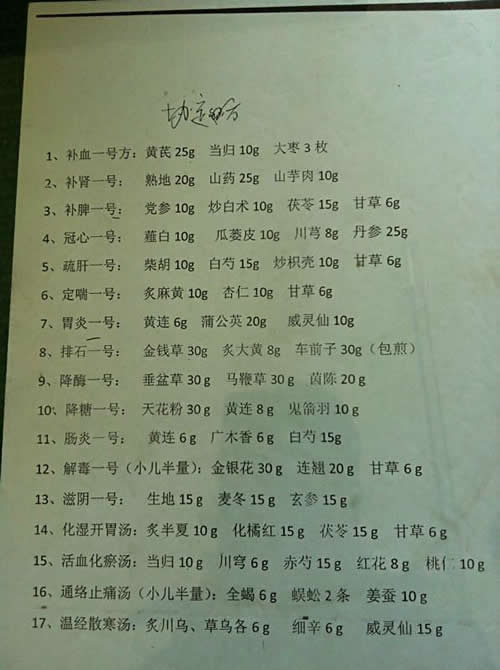 协定方
1、补血一号方：黄芪 25g 当归 10g 大枣 3 枚
2、补肾一号： 熟地 20g 山药 25g 山芋肉 10g
3、补脾一号： 党参 10g 炒白术 10g 茯苓 15g 甘草 6g
4、冠心一号： 薤白 10g 瓜蒌皮 10g 川芎 8g 丹参 25g
5、疏肝一号： 柴胡 10g 白芍 15g 炒枳壳 10g 甘草 6g
6、定喘一号： 炙麻黄 10g 杏仁 10g 甘草 6g
7、胃炎一号： 黄连 6g 蒲公英 20g 威灵仙 10g
8、排石一号： 金钱草 30g 炙大黄 8g 车前子 30g（包煎）
9、降酶一号： 垂盆草 30 g 马鞭草 30 g 茵陈 20 g
10、降糖一号： 天花粉 30 g 黄连 8 g 鬼箭羽 10 g
11、肠炎一号： 黄连 6 g 广木香 6 g 白芍 15g
12、解毒一号（小儿半量）：金银花 30 g 连翘 20 g 甘草 6 g
13、滋阴一号： 生地 15 g 麦冬 15 g 玄参 15 g
14、化湿开胃汤：炙半夏 10 g 化橘红 15 g 茯苓 15 g 甘草 6 g
15、活血化瘀汤：当归 10 g 川穹 6 g 赤芍 15 g 红花 8 g 桃仁 10 g
16、通络止痛汤（小儿半量）：全蝎 6 g 蜈蚣 2 条 姜蚕 10 g
17、温经散寒汤：炙川乌、草乌各 6 g 细辛 6 g 威灵仙 15 g